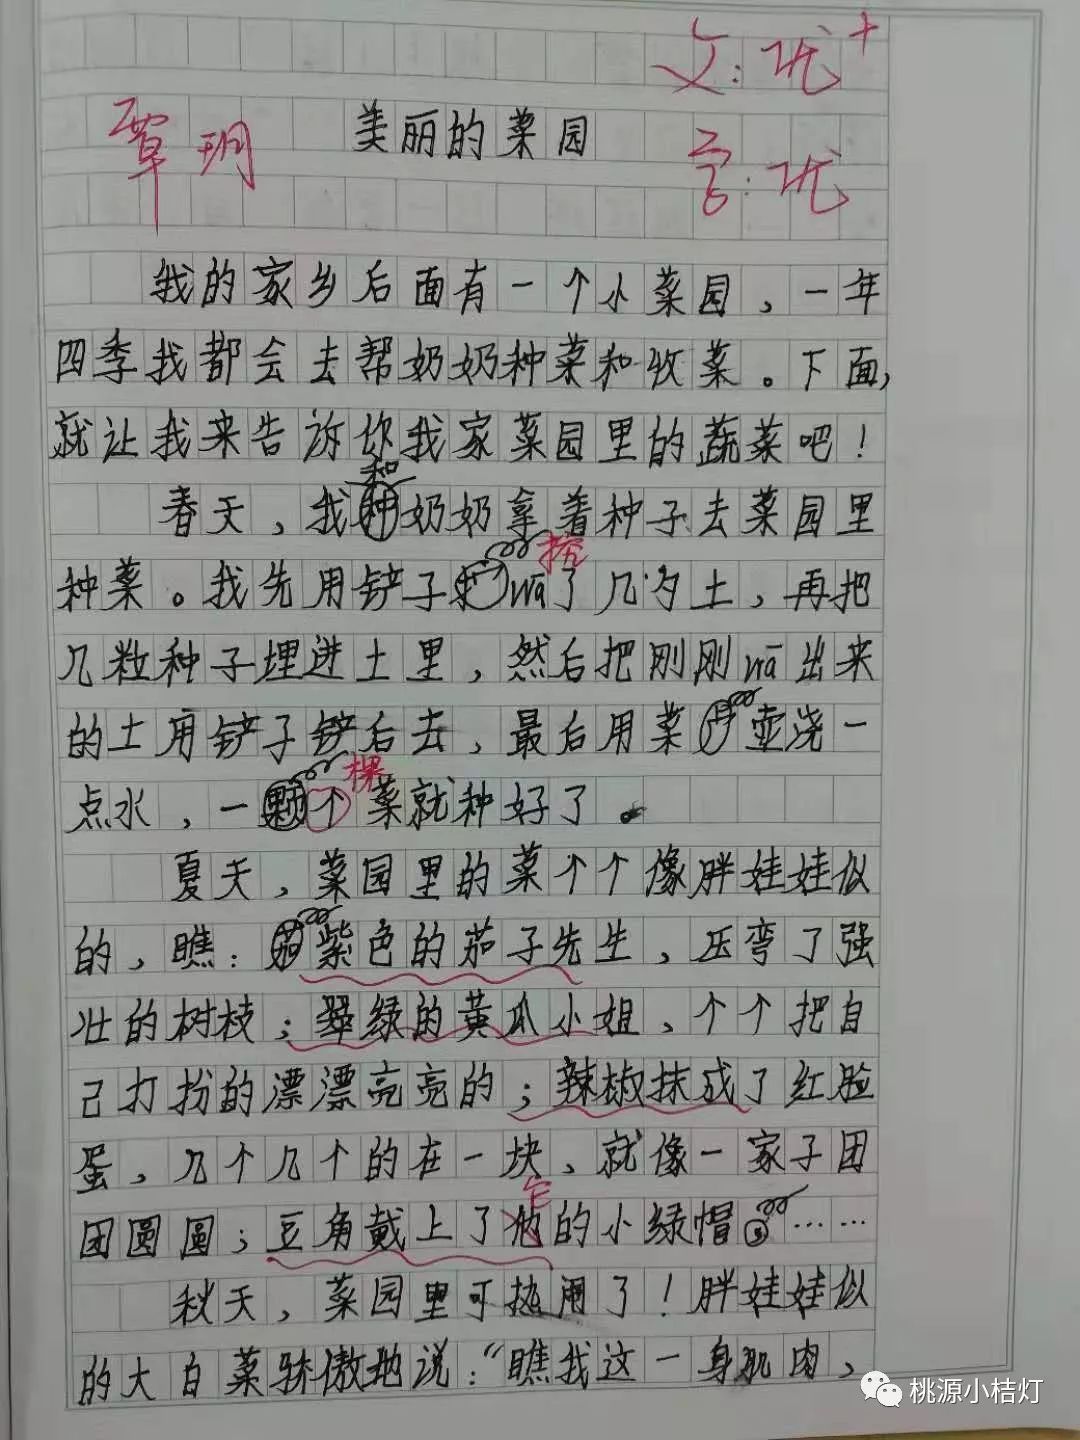 文:优+
覃玥
美丽的菜园
字:优
我的家乡后面有一个小菜园,一年
四季我都会去帮奶奶种菜和收菜。下面,
就让我来告诉你我家菜园里的蔬菜吧!
和
春天,我奶奶拿着种子去菜园里
挖
种菜。我先用铲子wā了几勺土,再把
几粒种子埋进土里,然后把刚刚wā出来
的土用铲子铲后去,最后用菜壶浇一
棵
点水,一颗个菜就种好了。
夏天,菜园里的菜个个像胖娃娃似
的,瞧:茄紫色的茄子先生,压弯了强
壮的树枝;翠绿的黄瓜小姐,个个把自
己打扮的漂漂亮亮的;辣椒抹成了红脸
蛋,几个几个的在一块,就像一家子团
它
团圆圆;豆角戴上了他的小绿帽……
秋天,菜园里可热闹了!胖娃娃似
的大白菜骄傲地说:“瞧我这一身肌肉,
桃源小桔灯